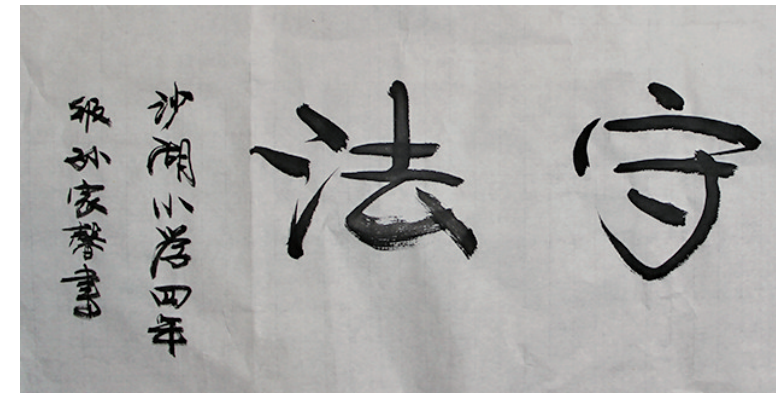 守法
沙湖小学四年
级孙家馨书